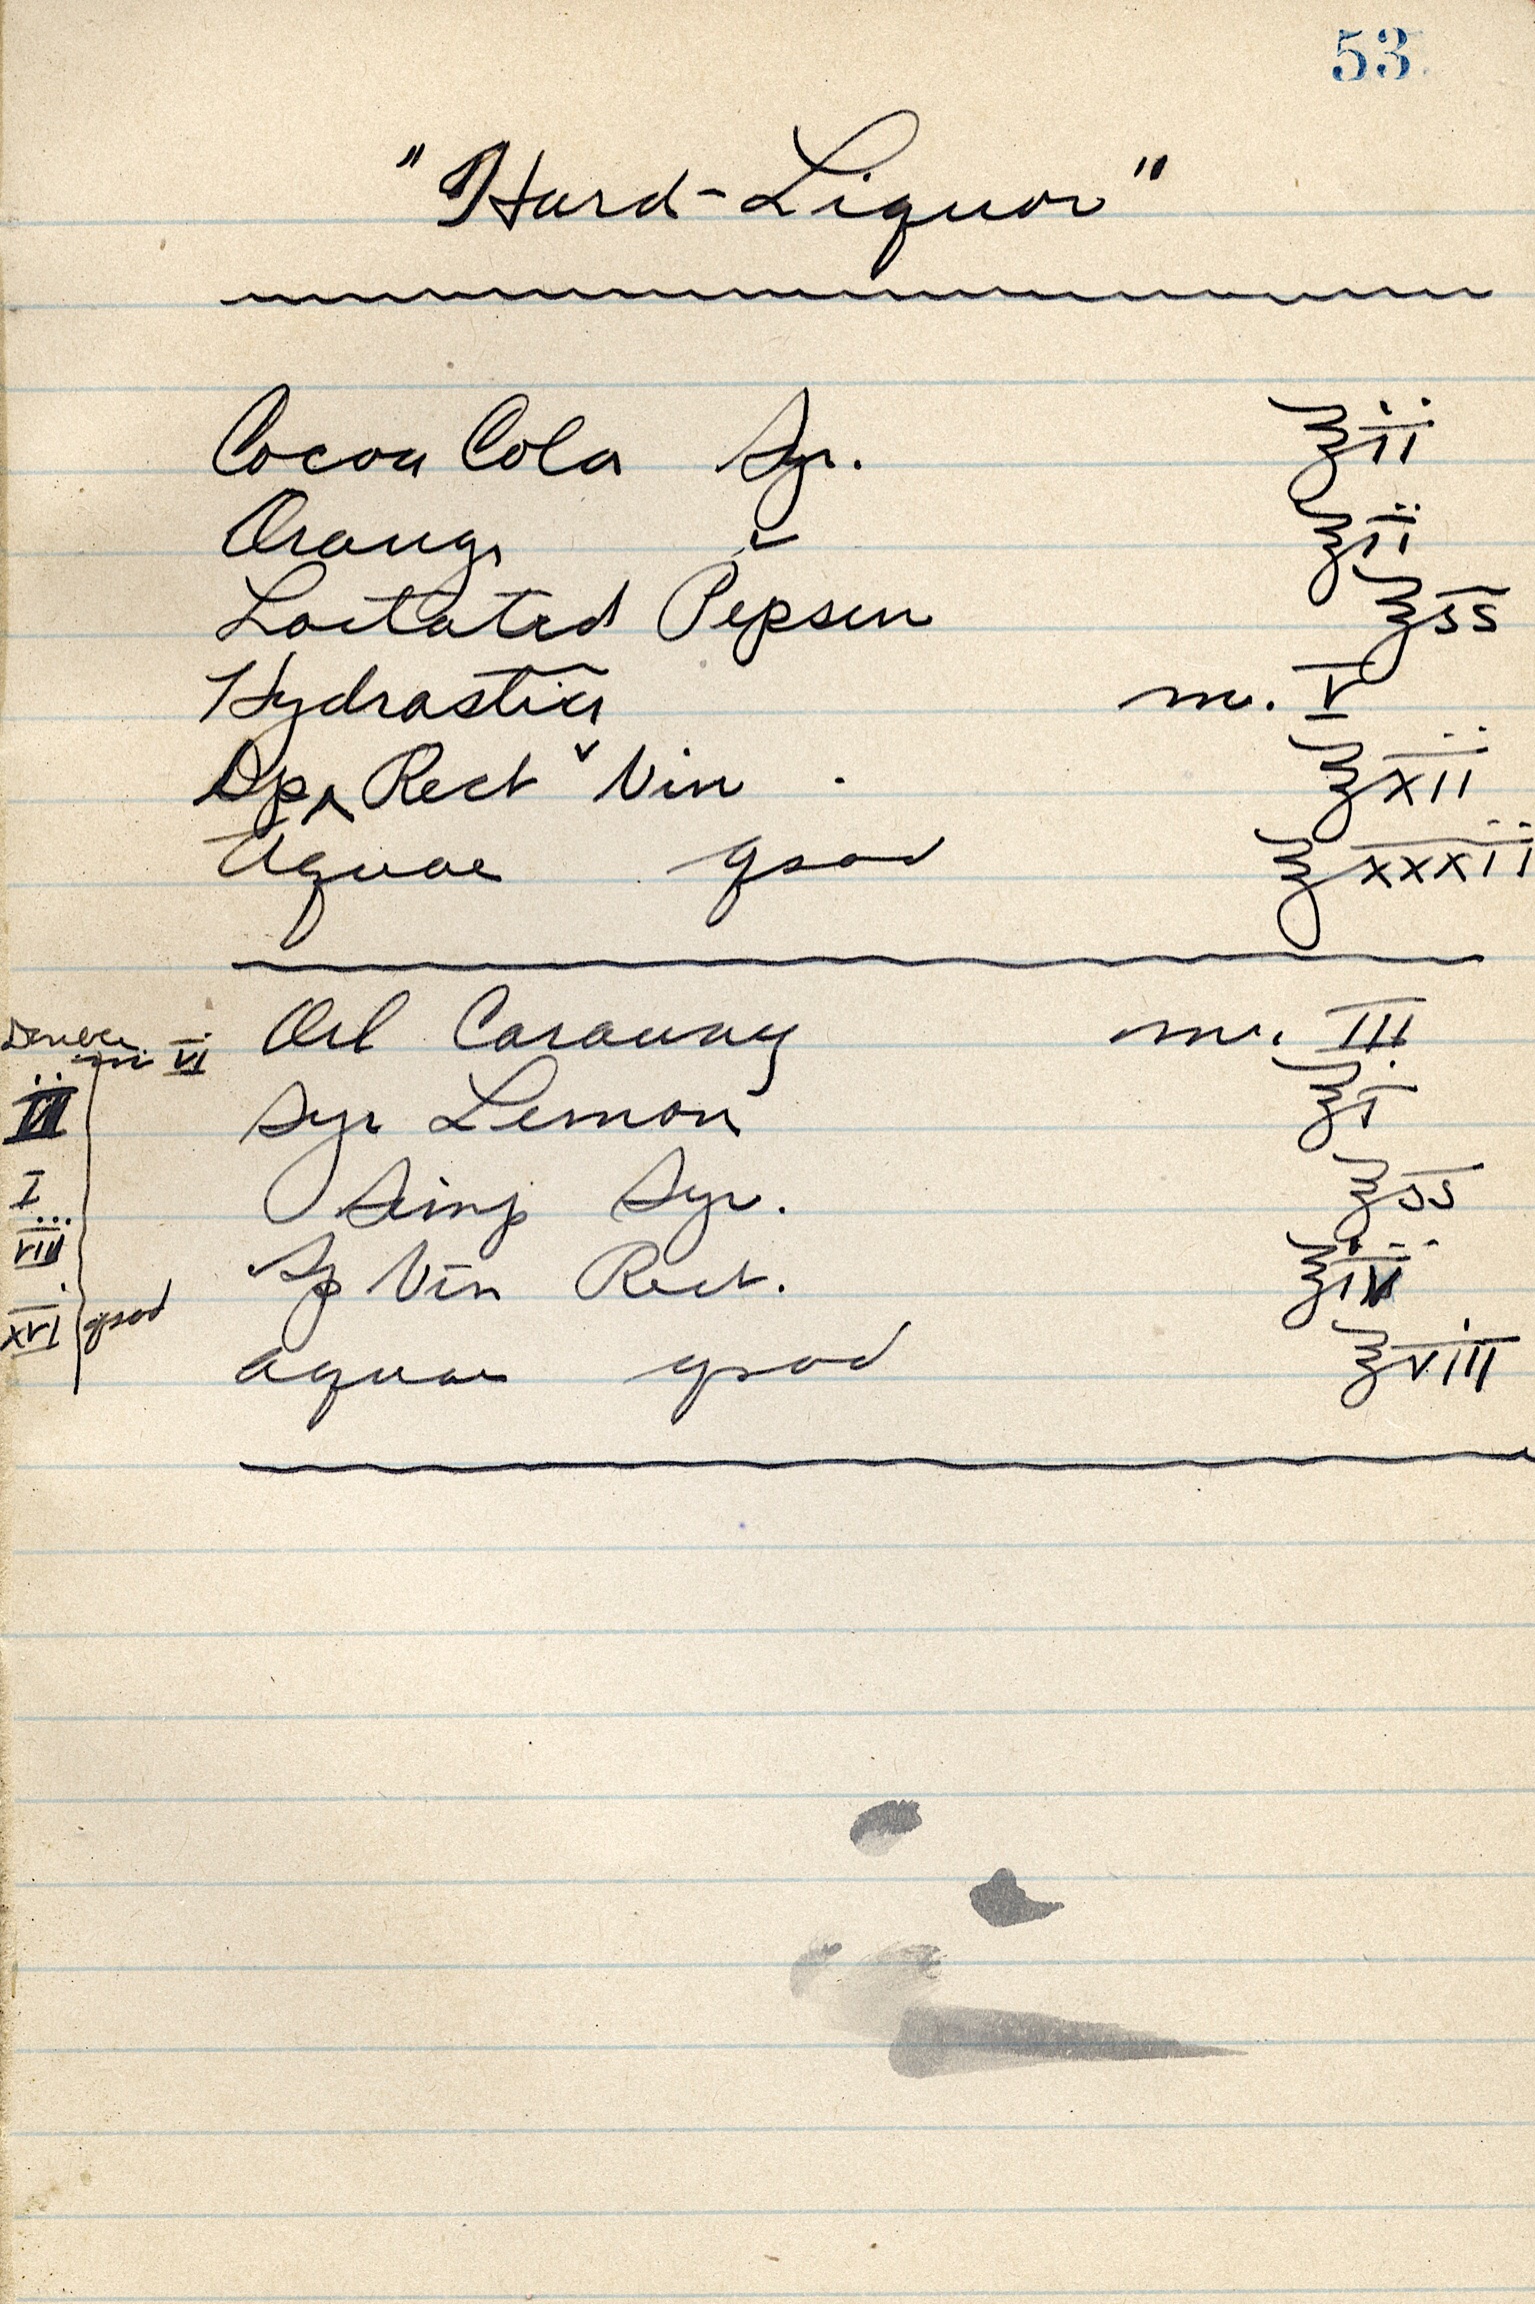 53
"Hard-Liquor"
Cocoa Cola Syr. ℥ii
Orange " ℥ii
Lactated Pepsin ℥ss
Hydrastia m. V
Sp Rect Vin ℥xii
Aquae qsad ℥xxxii
Double m VI Oil Caraway m. III
II Syr Lemon ℥i
I Simp Syr. ℥ss
viii Sp Vin Rect. ℥iv
xvi qsad aquae qsad ℥viii